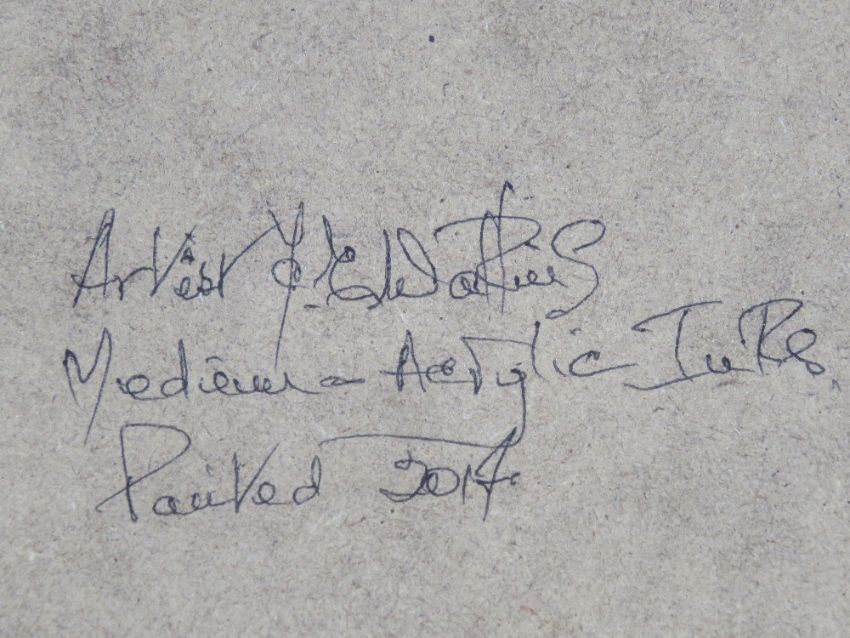 Artist J. E Watkins
Medium - Acrylic Inks
Painted 2017